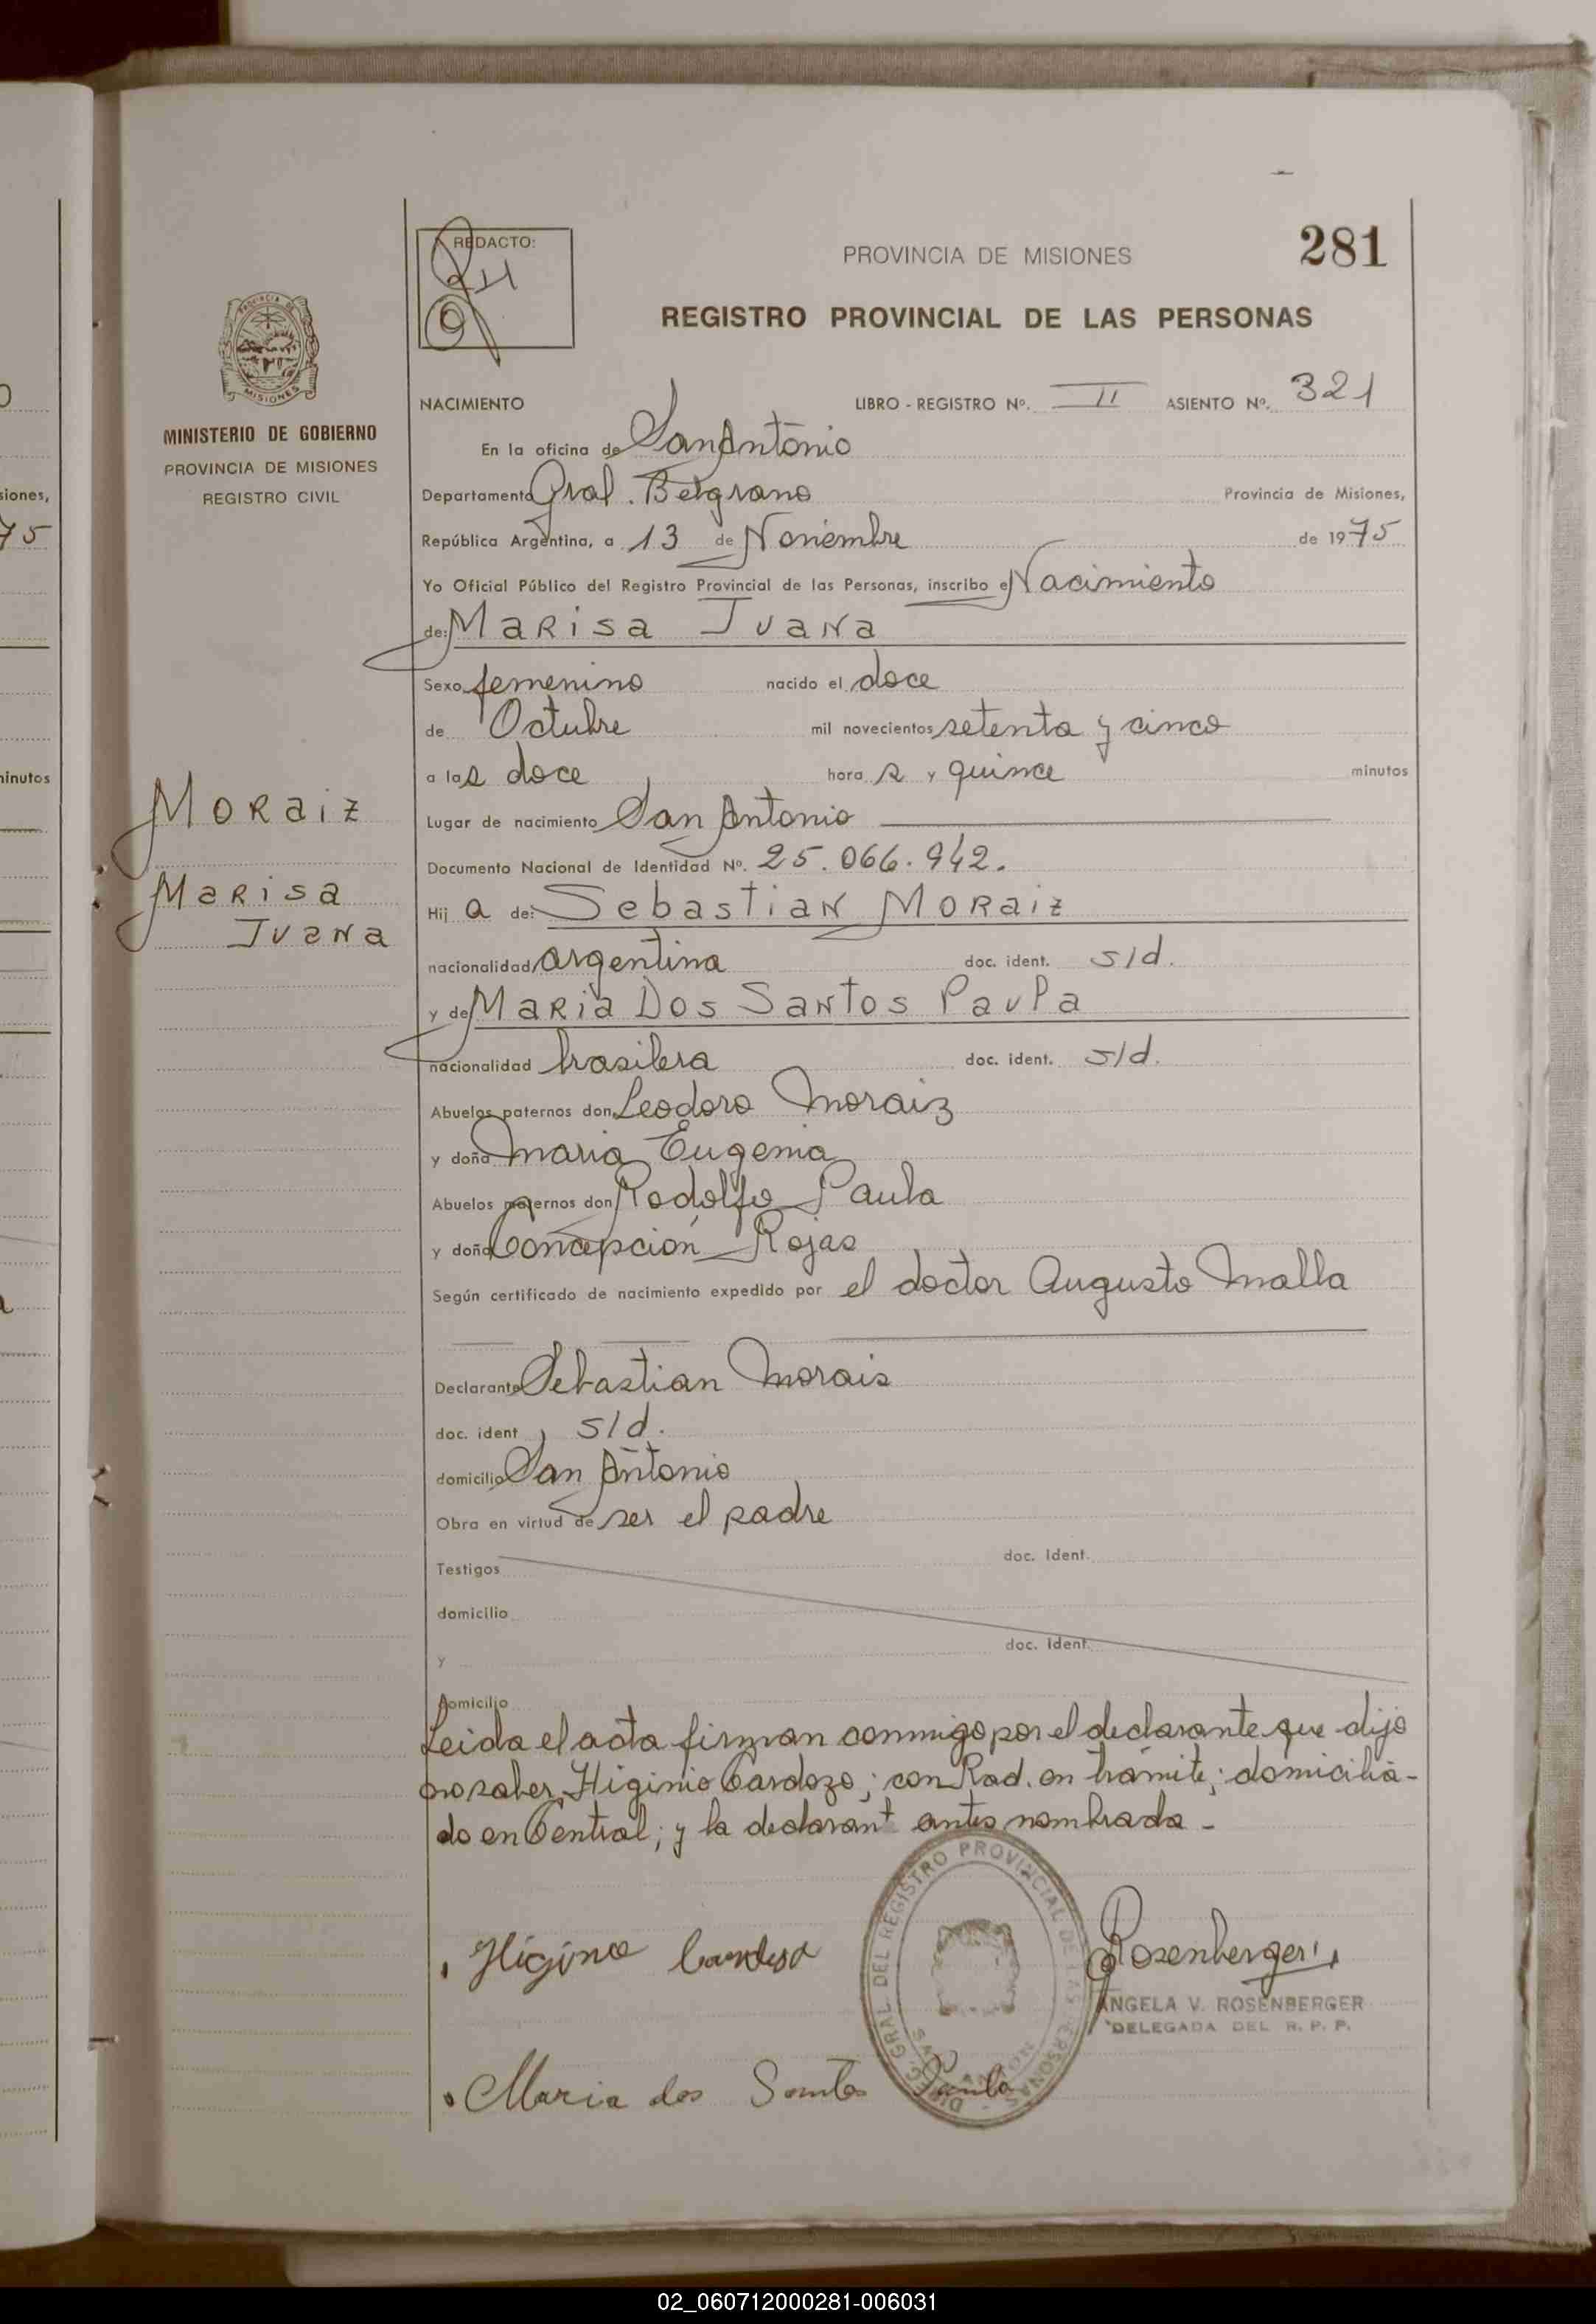 REDACTO:
PROVINCIA DE MISIONES
281
REGISTRO PROVINCIAL DE LAS PERSONAS
MINISTERIO DE GOBIERNO
PROVINCIA DE MISIONES
REGISTRO CIVIL
NACIMIENTO LIBRO - REGISTRO Nº. II ASIENTO Nº. 321
En la oficina de San Antonio
Departamento Gral. Belgrano Provincia de Misiones,
República Argentina, a 13 de Noviembre de 1975
Yo Oficial Público del Registro Provincial de las Personas, inscribo el Nacimiento
de: Marisa Juana
Sexo femenino nacido el doce
de Octubre mil novecientos setenta y cinco
a las doce hora s y quince minutos
Lugar de nacimiento San Antonio
Documento Nacional de Identidad Nº. 25.066.942.
Hij a de: Sebastian Moraiz
nacionalidad argentina doc. ident. s/d.
y de Maria Dos Santos Paula
nacionalidad brasilera doc. ident. s/d.
Abuelos paternos don Leodoro Moraiz
y doña Maria Eugenia
Abuelos maternos don Rodolfo Paula
y doña Concepción Rojas
Según certificado de nacimiento expedido por el doctor Augusto Malla
Declarante Sebastian Morais
doc. ident s/d.
domicilio San Antonio
Obra en virtud de ser el padre
Testigos doc. ident.
domicilio
y doc. ident.
domicilio
Leida el acta firman conmigo por el declarante que dijo
no saber, Higinio Cardozo; con Rad. en trámite; domicilia-
do en Central; y la declarant antes nombrada -
Moraiz
Marisa
Juana
Higino Cardoso
Rosenberger
ANGELA V. ROSENBERGER
DELEGADA DEL R. P. P.
DIREC. GRAL. DEL REGISTRO PROVINCIAL DE LAS PERSONAS
Maria dos Santos Paula
siones,
75
minutos
02_060712000281-006031